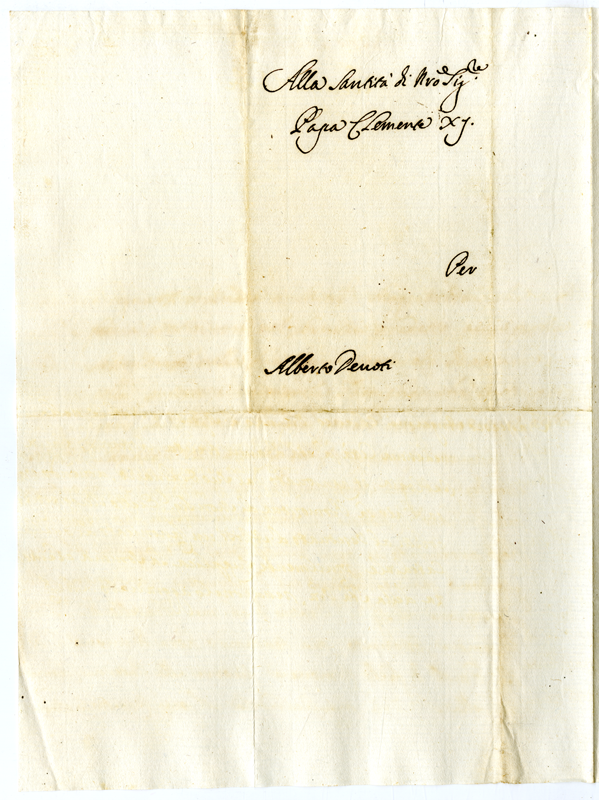 Alla Santità di Nro Sigre
Papa Clemente XJ.
Per
Alberto Devoti